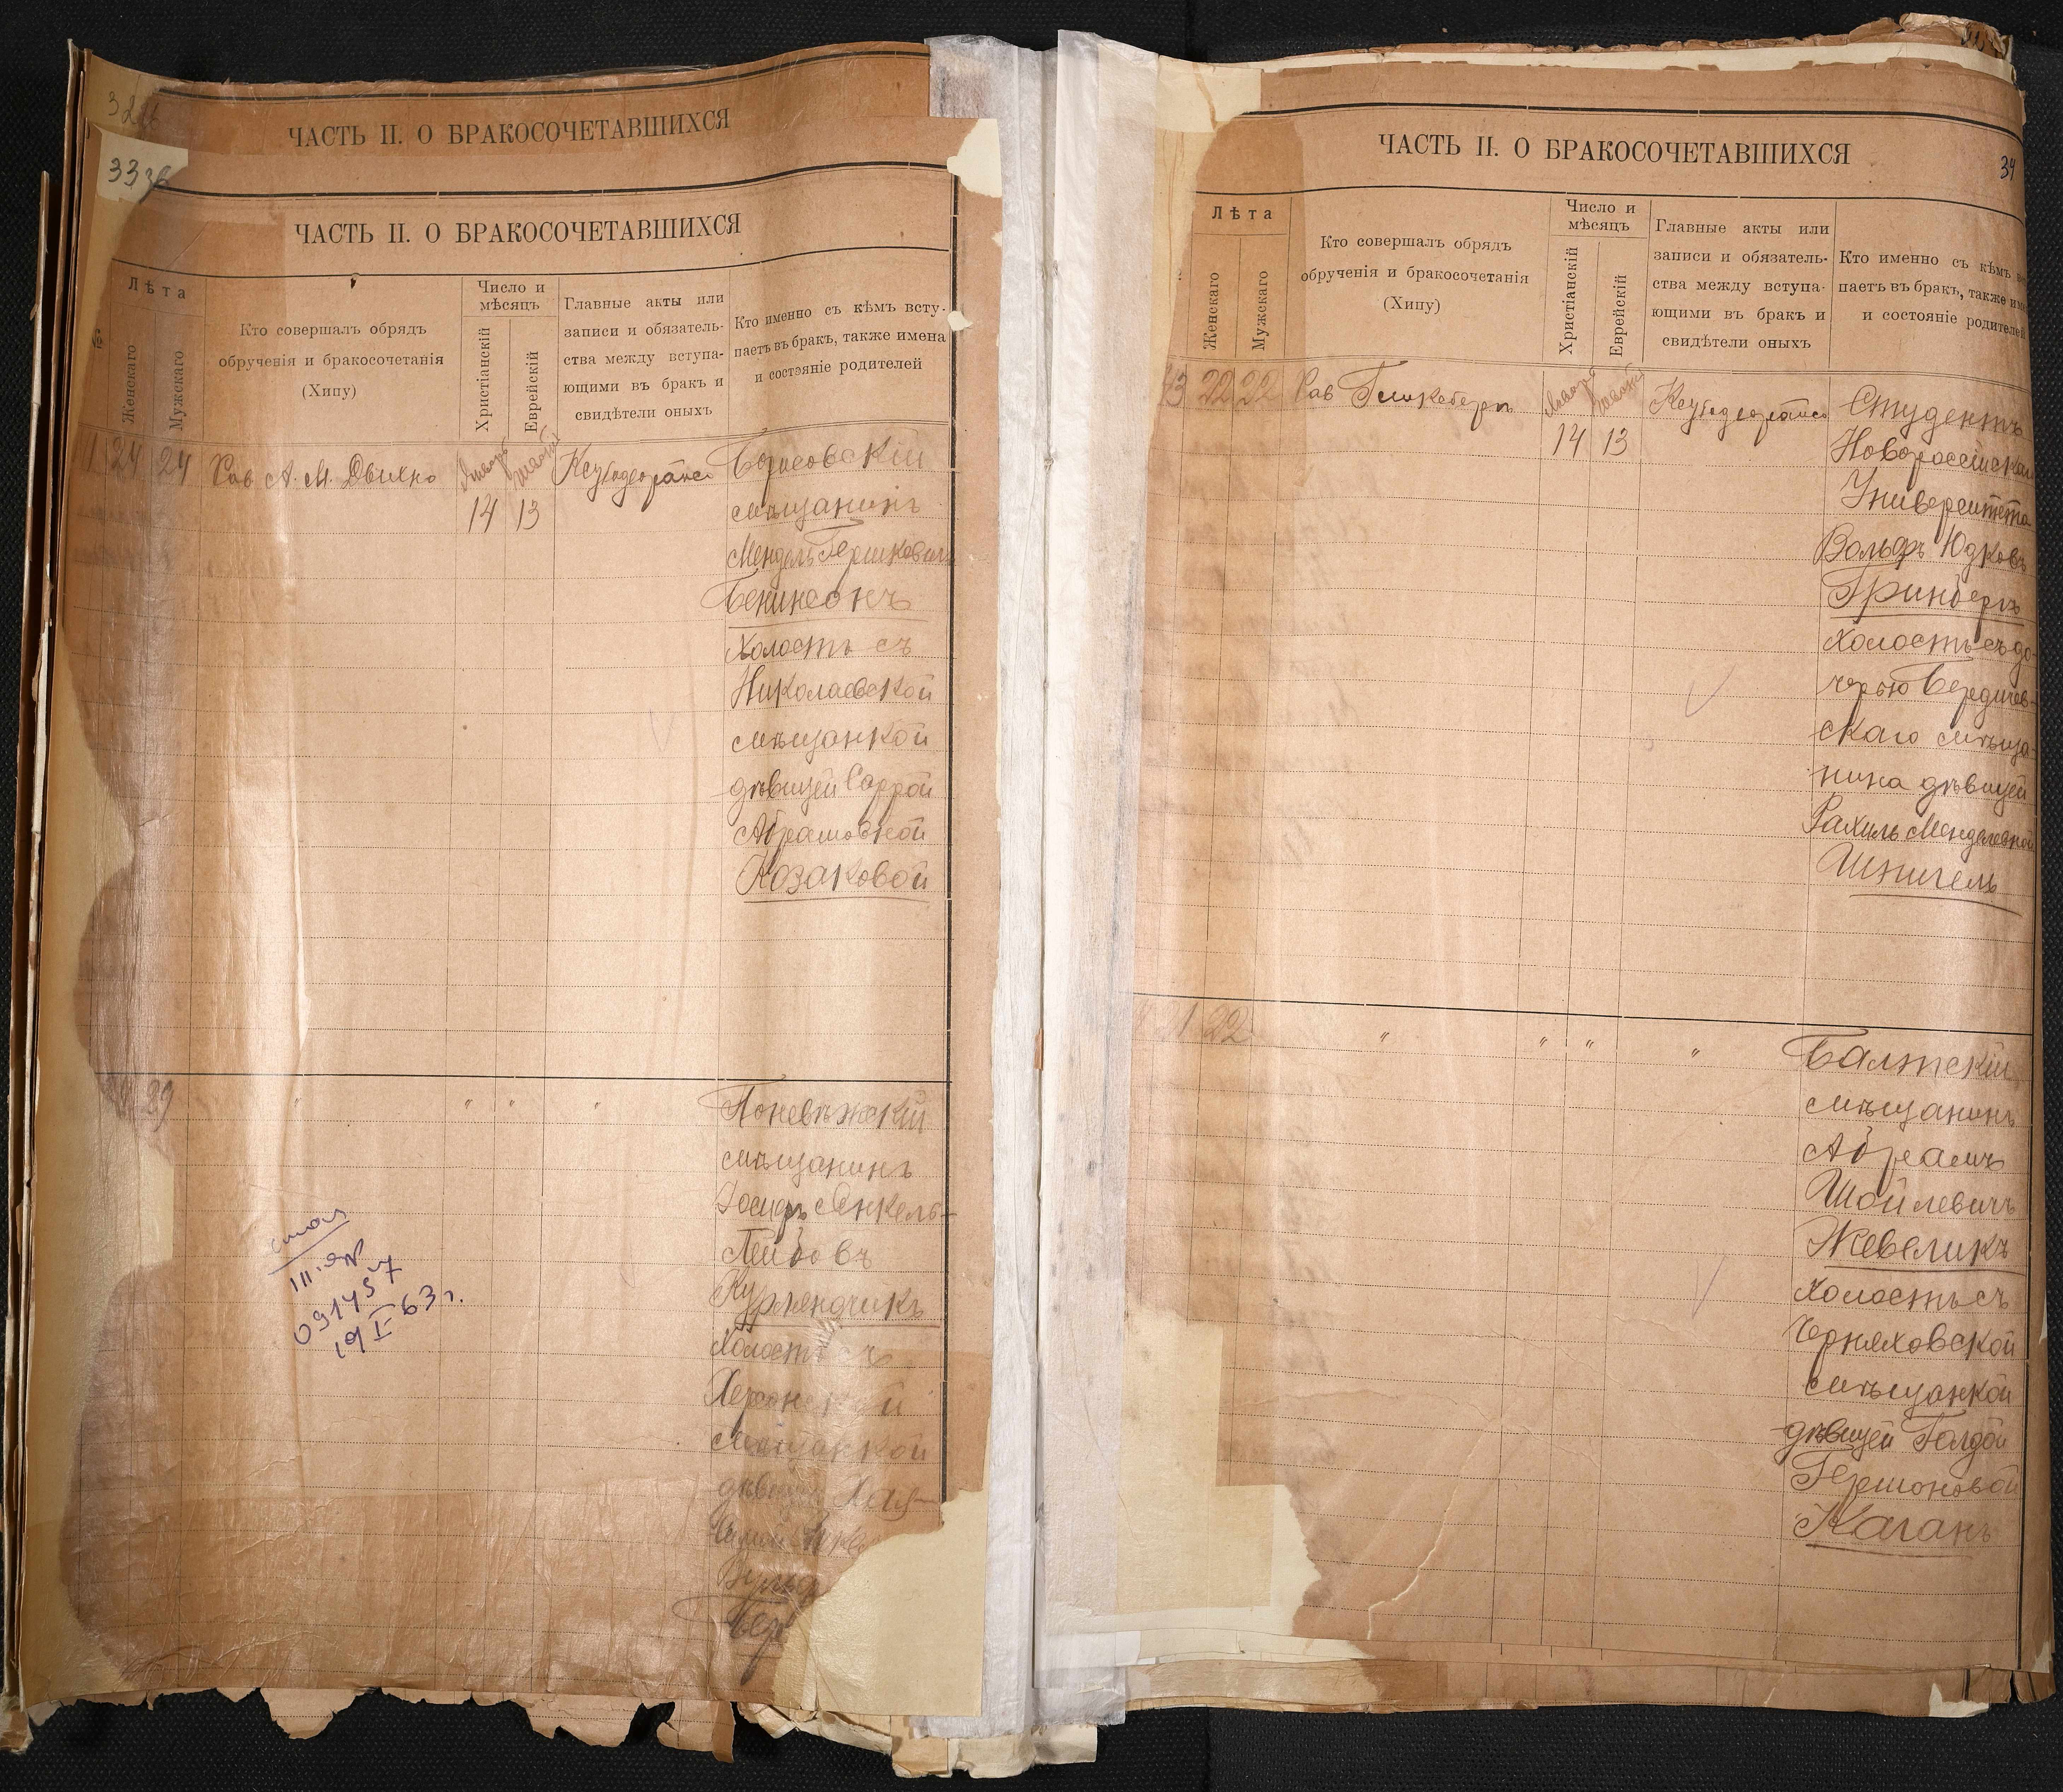 ЧАСТЬ II. О БРАКОСОЧЕТАВШИХСЯ
ЧАСТЬ II. О БРАКОСОЧЕТАВШИХСЯ
№
Лѣта
Женскаго
Мужскаго
Кто совершалъ обрядъ
обрученія и бракосочетанія
(Хипу)
Число и
мѣсяцъ
Христіанскій
Еврейскій
Главные акты или
записи и обязатель-
ства между вступа-
ющими въ бракъ и
свидѣтели оныхъ
Кто именно съ кѣмъ всту-
паетъ въ бракъ, также имена
и состояніе родителей
24 24 Рав А. М. Двилно
14 13
Борисовскій
мѣщанинъ
Мендель Гершковичъ
Бенинсонъ
холостъ съ
Николаевской
мѣщанкой
дѣвицей Саррой
Абрамовной
Козаковой
29 " " " "
Поневѣжскій
мѣщанинъ
Іосифъ Янкель-
Лейбовъ
Курляндчикъ
холостъ съ
Херсонской
мѣщанкой
дѣвицей Хая-
III-ЯР
091457
19 I-63 г.
ЧАСТЬ II. О БРАКОСОЧЕТАВШИХСЯ
34
Лѣта
Женскаго
Мужскаго
Кто совершалъ обрядъ
обрученія и бракосочетанія
(Хипу)
Число и
мѣсяцъ
Христіанскій
Еврейскій
Главные акты или
записи и обязатель-
ства между вступа-
ющими въ бракъ и
свидѣтели оныхъ
Кто именно съ кѣмъ
паетъ въ бракъ, также
и состояніе родителей
22 22 Рав Гликсбергъ
14 13
Студентъ
Новороссійскаго
Университета
Вольфъ Юдковъ
Гринбергъ
холостъ съ до-
черью Бердичев-
скаго мѣща-
нина дѣвицей
Рахиль Менделевной
Шпигель
21 22 " " " "
Балтскій
мѣщанинъ
Абрамъ
Шойлевичъ
Жевеликъ
холостъ съ
Черняховской
мѣщанкой
дѣвицей Голдой
Гершоновой
Каганъ